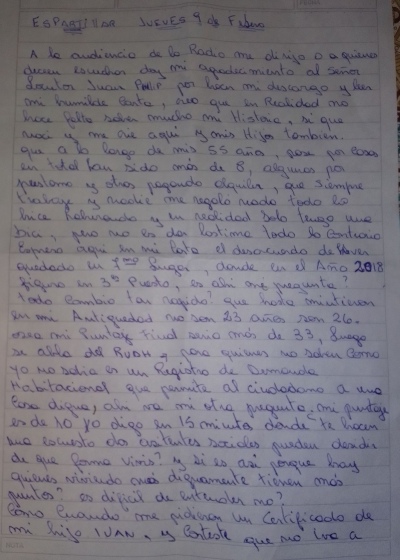 ESPARTILLAR JUEVES 9 de Febrero
A la audiencia de la Radio me dirijo o a quienes
deseen escuchar doy mi agradecimiento al Señor
Locutor Juan por hacer mi descargo y leer
mi humilde Carta, creo que en Realidad no
hace falta saber mucho mi Historia, si que
naci y me crie aqui y mis Hijos tambien.
que a lo largo de mis 55 años, pase por Casas
en total han sido más de 8, algunas por
prestamo y otras pagando alquiler, que siempre
trabaje y nadie me regalo nada todo lo
hice laburando y en realidad solo tengo una
bici, pero no es dar lastima todo lo Contrario
Expreso aqui en mi Carta el desacuerdo de haber
quedado en lugar, donde en el Año 2018
figuro en 3er Puesto, es ahi me pregunto?
todo Cambio tan rapido? que hasta mintieron
en mi Antiguedad no son 23 años son 26.
osea mi Puntaje Final seria más de 33, Luego
se abla del RUDH, para quienes no saben Como
yo no sabia es un Registro de Demanda
Habitacional que permite al ciudadano a una
Casa digna, ahi va mi otra pregunta, mi puntaje
es de 10 yo digo en 15 minutos donde te hacen
una encuesta dos asistentes sociales pueden
de que forma vivis? y si es asi porque hay
quienes viviendo más dignamente tienen más
puntos? es dificil de entender no?
Como Cuando me pidieron un Certificado de
mi hijo IVAN, y Conteste que no iva a